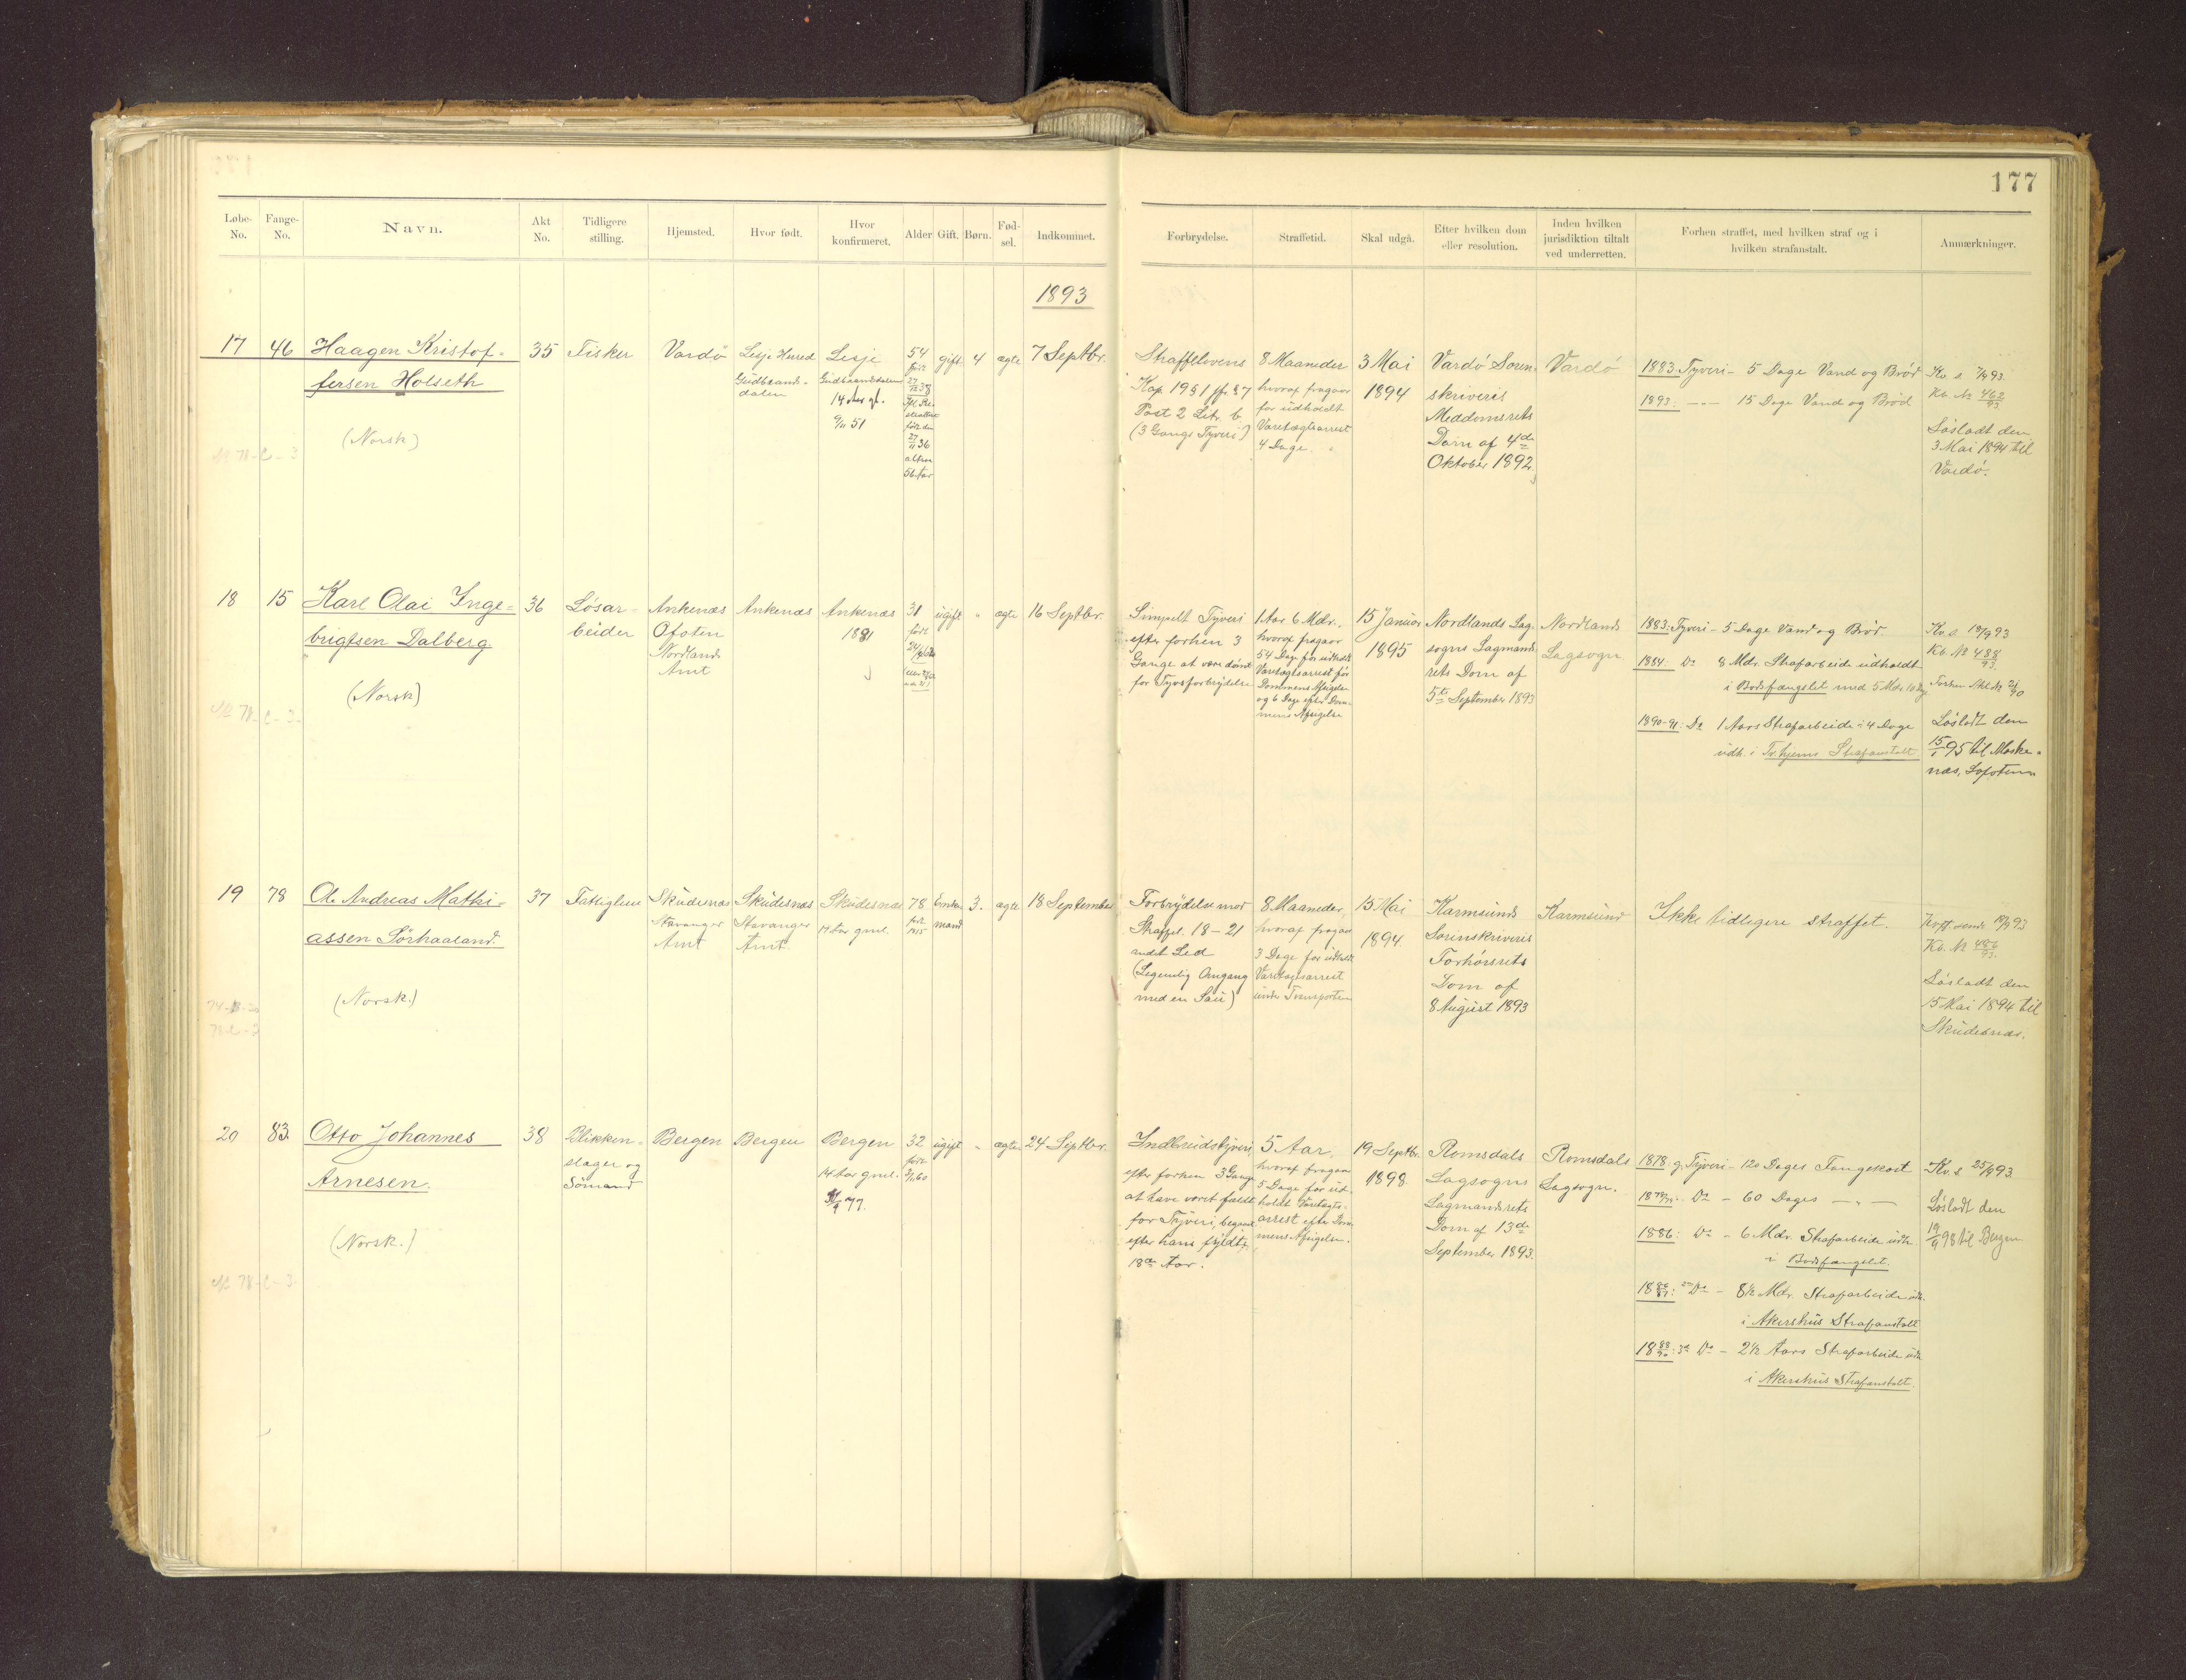 177
Løbe-No.
Fange-No.
Navn.
Akt No.
Tidligere stilling.
Hjemsted.
Hvor født.
Hvor konfirmeret.
Alder
Gift.
Børn.
Fødsel.
Indkommet.
Forbrydelse.
Straffetid.
Skal udgå.
Efter hvilken dom eller resolution.
Inden hvilken jurisdiktion tiltalt ved underretten.
Forhen straffet, med hvilken straf og i hvilken strafanstalt.
Anmærkninger.
1893
17
46
Haagen Kristof-
fersen Holseth
(Norsk)
35
Fisker
Vardø
Lesje Herred
Gudbrands-
dalen
Lesje
Gudbrandsdalen
14 Aar gl.
9/11 51
54
født
27/12 38
født den
27/11 36
altsaa
56 Aar
gift
4
ægte
7 Septbr.
Straffelovens
Kap 19 § 1 jfr. § 7
Post 2 Lit. b
(3 Gangs Tyveri)
8 Maaneder
hvoraf fragaar
for udholdt
Varetægtsarrest
4 Dage.
3 Mai
1894
Vardø Soren-
skriveris
Meddomsrets
Dom af 4de
Oktober 1892
Vardø
1883: Tyveri - 5 Dage Vand og Brød
1893: -"- 15 Dage Vand og Brød
Kv. s. 7/9 93.
Kb. № 462/93
Løsladt den
3 Mai 1894 til
Vardø.
№ 78-C-3
18
15
Karl Olai Inge-
brigtsen Dalberg
(Norsk)
36
Løsar-
beider
Ankenæs
Ofoten
Nordlands
Amt
Ankenæs
Ankenæs
1881
31
født
ugift
"
ægte
16 Septbr.
Simpelt Tyveri
efter forhen 3
Gange at være dømt
for Tyvsforbrydelse
1 Aar 6 Mdr.,
hvoraf fragaar
54 Dage for udholdt
Varetægtsarrest før
Dommens Afsigelse
og 6 Dage efter Dom-
mens Afsigelse
15 Januar
1895
Nordlands Lag-
sogns Lagmands-
rets Dom af
5te September 1893
Nordlands
Lagsogn
1883: Tyveri - 5 Dage Vand og Brød.
1884: Do 8 Mdr. Strafarbeide udholdt
i Bodsfængslet med 5 Mdr. 10 Dg.
1890-91: Do 1 Aars Strafarbeide ÷ 4 Dage
udh. i Tr.hjems Strafanstalt
Kv. s. 18/9 93
Kb. № 488/93.
Løsladt den
15/1 95 til Moske-
næs, Lofoten
№ 78-C-3
19
78
Ole Andreas Mathi-
assen Sørhaaland.
(Norsk.)
37
Fattiglem
Skudesnæs
Stavanger
Amt
Skudesnæs
Stavanger
Amt
Skudesnæs
17 Aar gml.
78
født
1815
Enke-
mand
3.
ægte
18 September
Forbrydelse mod
Straffel. 18-21
andet Led
(Legemlig Omgang
med en Sau)
8 Maaneder,
hvoraf fragaar
3 Dage for udholdt
Varetægtsarrest
under Transporten
15 Mai
1894.
Karmsunds
Sorenskriveris
Forhørsrets
Dom af
8 August 1893
Karmsund
Ikke tidligere straffet.
Kvitt. sendt 19/9 93
Kb. № 486/93.
Løsladt den
15 Mai 1894 til
Skudesnæs.
78-C-3
20
83.
Otto Johannes
Arnesen.
(Norsk.)
38
Blikken-
slager og
Sømand
Bergen
Bergen
Bergen
14 Aar gml.
77.
32
født
3/11 60
ugift
"
ægte
24 Septbr.
Indbrudstyveri,
efter forhen 3 Gange
at have været fældt
for Tyveri, begaaet
efter hans fyldte
18de Aar.
5 Aar,
hvoraf fragaar
5 Dage for ud-
holdt Varetægts-
arrest efter Dom-
mens Afsigelse.
19 Septbr.
1898
Romsdals
Lagsogns
Lagmandsrets
Dom af 13de
September 1893.
Romsdals
Lagsogn.
1878: g. Tyveri - 120 Dages Fangekost
1878/79: Do - 60 Dages -"-
1886: Do - 6 Mdr. Strafarbeide udh.
i Bodsfængslet.
1886/87: 2de Do - 8½ Mdr. Strafarbeide udh.
i Akershus Strafanstalt
1888/90: 3de Do - 2½ Aars Strafarbeide udh.
i Akershus Strafanstalt.
Kv. s. 25/9 93.
Løsladt den
19/9 98 til Bergen
№ 78-C-3